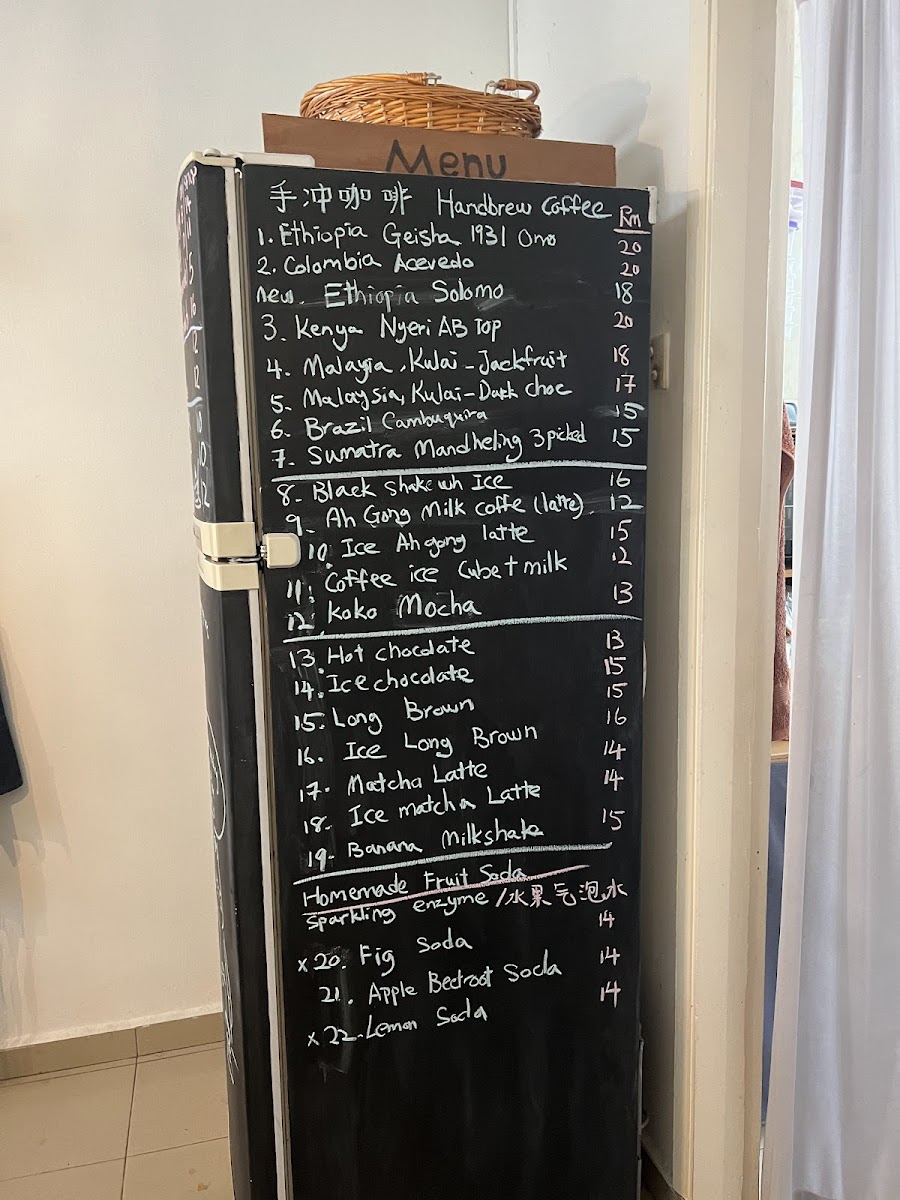 Menu
手冲咖啡 Handbrew Coffee Rm
1. Ethiopia Geisha 1931 Omo 20
2. Colombia Acevedo 20
new. Ethiopia Solomo 18
3. Kenya Nyeri AB Top 20
4. Malaysia, Kulai - Jackfruit 18
5. Malaysia, Kulai - Dark choc 17
6. Brazil Cambuquira 15
7. Sumatra Mandheling 3 picked 15
8. Black Shake wh Ice 16
9. Ah Gong Milk coffe (latte) 12
10. Ice Ah gong latte 15
11. Coffee ice Cube + milk 12
12. Koko Mocha 13
13. Hot chocolate 13
14. Ice chocolate 15
15. Long Brown 15
16. Ice Long Brown 16
17. Matcha Latte 14
18. Ice matcha Latte 14
19. Banana Milkshake 15
Homemade Fruit Soda
sparkling enzyme / 水果气泡水
x 20. Fig Soda 14
21. Apple Beetroot Soda 14
x 22. Lemon Soda 14